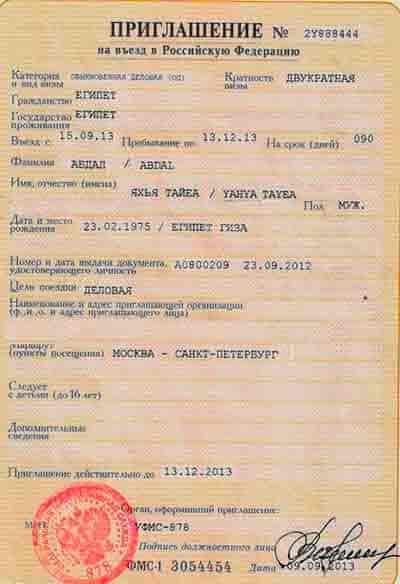 ПРИГЛАШЕНИЕ № 2Y888444
на въезд в Российскую Федерацию
Категория и вид визы ОБЫКНОВЕННАЯ ДЕЛОВАЯ (ОД) Кратность визы ДВУКРАТНАЯ
Гражданство ЕГИПЕТ
Государство проживания ЕГИПЕТ
Въезд с 15.09.13 Пребывание по 13.12.13 На срок (дней) 090
Фамилия АБДАЛ / ABDAL
Имя, отчество (имена)
ЯХЬЯ ТАЙЕА / YAHYA TAYEA
Пол МУЖ.
Дата и место рождения 23.02.1975 / ЕГИПЕТ ГИЗА
Номер и дата выдачи документа, удостоверяющего личность A0800209 23.09.2012
Цель поездки ДЕЛОВАЯ
Наименование и адрес приглашающей организации
(ф.,и.,о. и адрес приглашающего лица)
Маршрут
(пункты посещения) МОСКВА - САНКТ-ПЕТЕРБУРГ
Следует
с детьми (до 16 лет)
Дополнительные
сведения
Приглашение действительно до 13.12.2013
Орган, оформивший приглашение:
УФМС-878
878
Подпись должностного лица
ФМС-1 3054454 Дата 09.09.2013